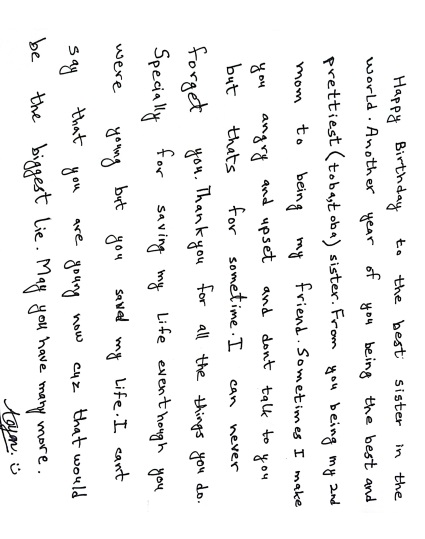 Happy Birthday to the best sister in the
world. Another year of you being the best and
prettiest (toba,toba) sister. From you being my 2nd
mom to being my friend. Sometimes I make
you angry and upset and dont talk to you
but thats for sometime. I can never
forget you. Thankyou for all the things you do.
Specially for saving my Life eventhough you
were young but you saved my Life. I cant
say that you are young now cuz that would
be the biggest Lie. May you have many more.
:)